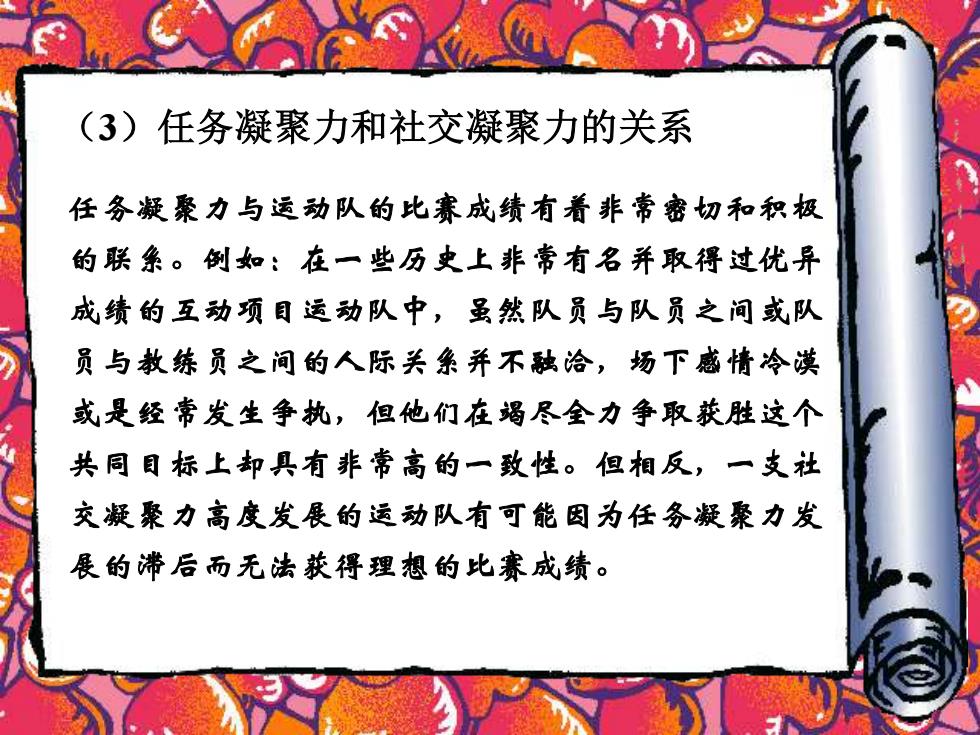 （3）任务凝聚力和社交凝聚力的关系
任务凝聚力与运动队的比赛成绩有着非常密切和积极
的联系。例如：在一些历史上非常有名并取得过优异
成绩的互动项目运动队中，虽然队员与队员之间或队
员与教练员之间的人际关系并不融洽，场下感情冷漠
或是经常发生争执，但他们在竭尽全力争取获胜这个
共同目标上却具有非常高的一致性。但相反，一支社
交凝聚力高度发展的运动队有可能因为任务凝聚力发
展的滞后而无法获得理想的比赛成绩。